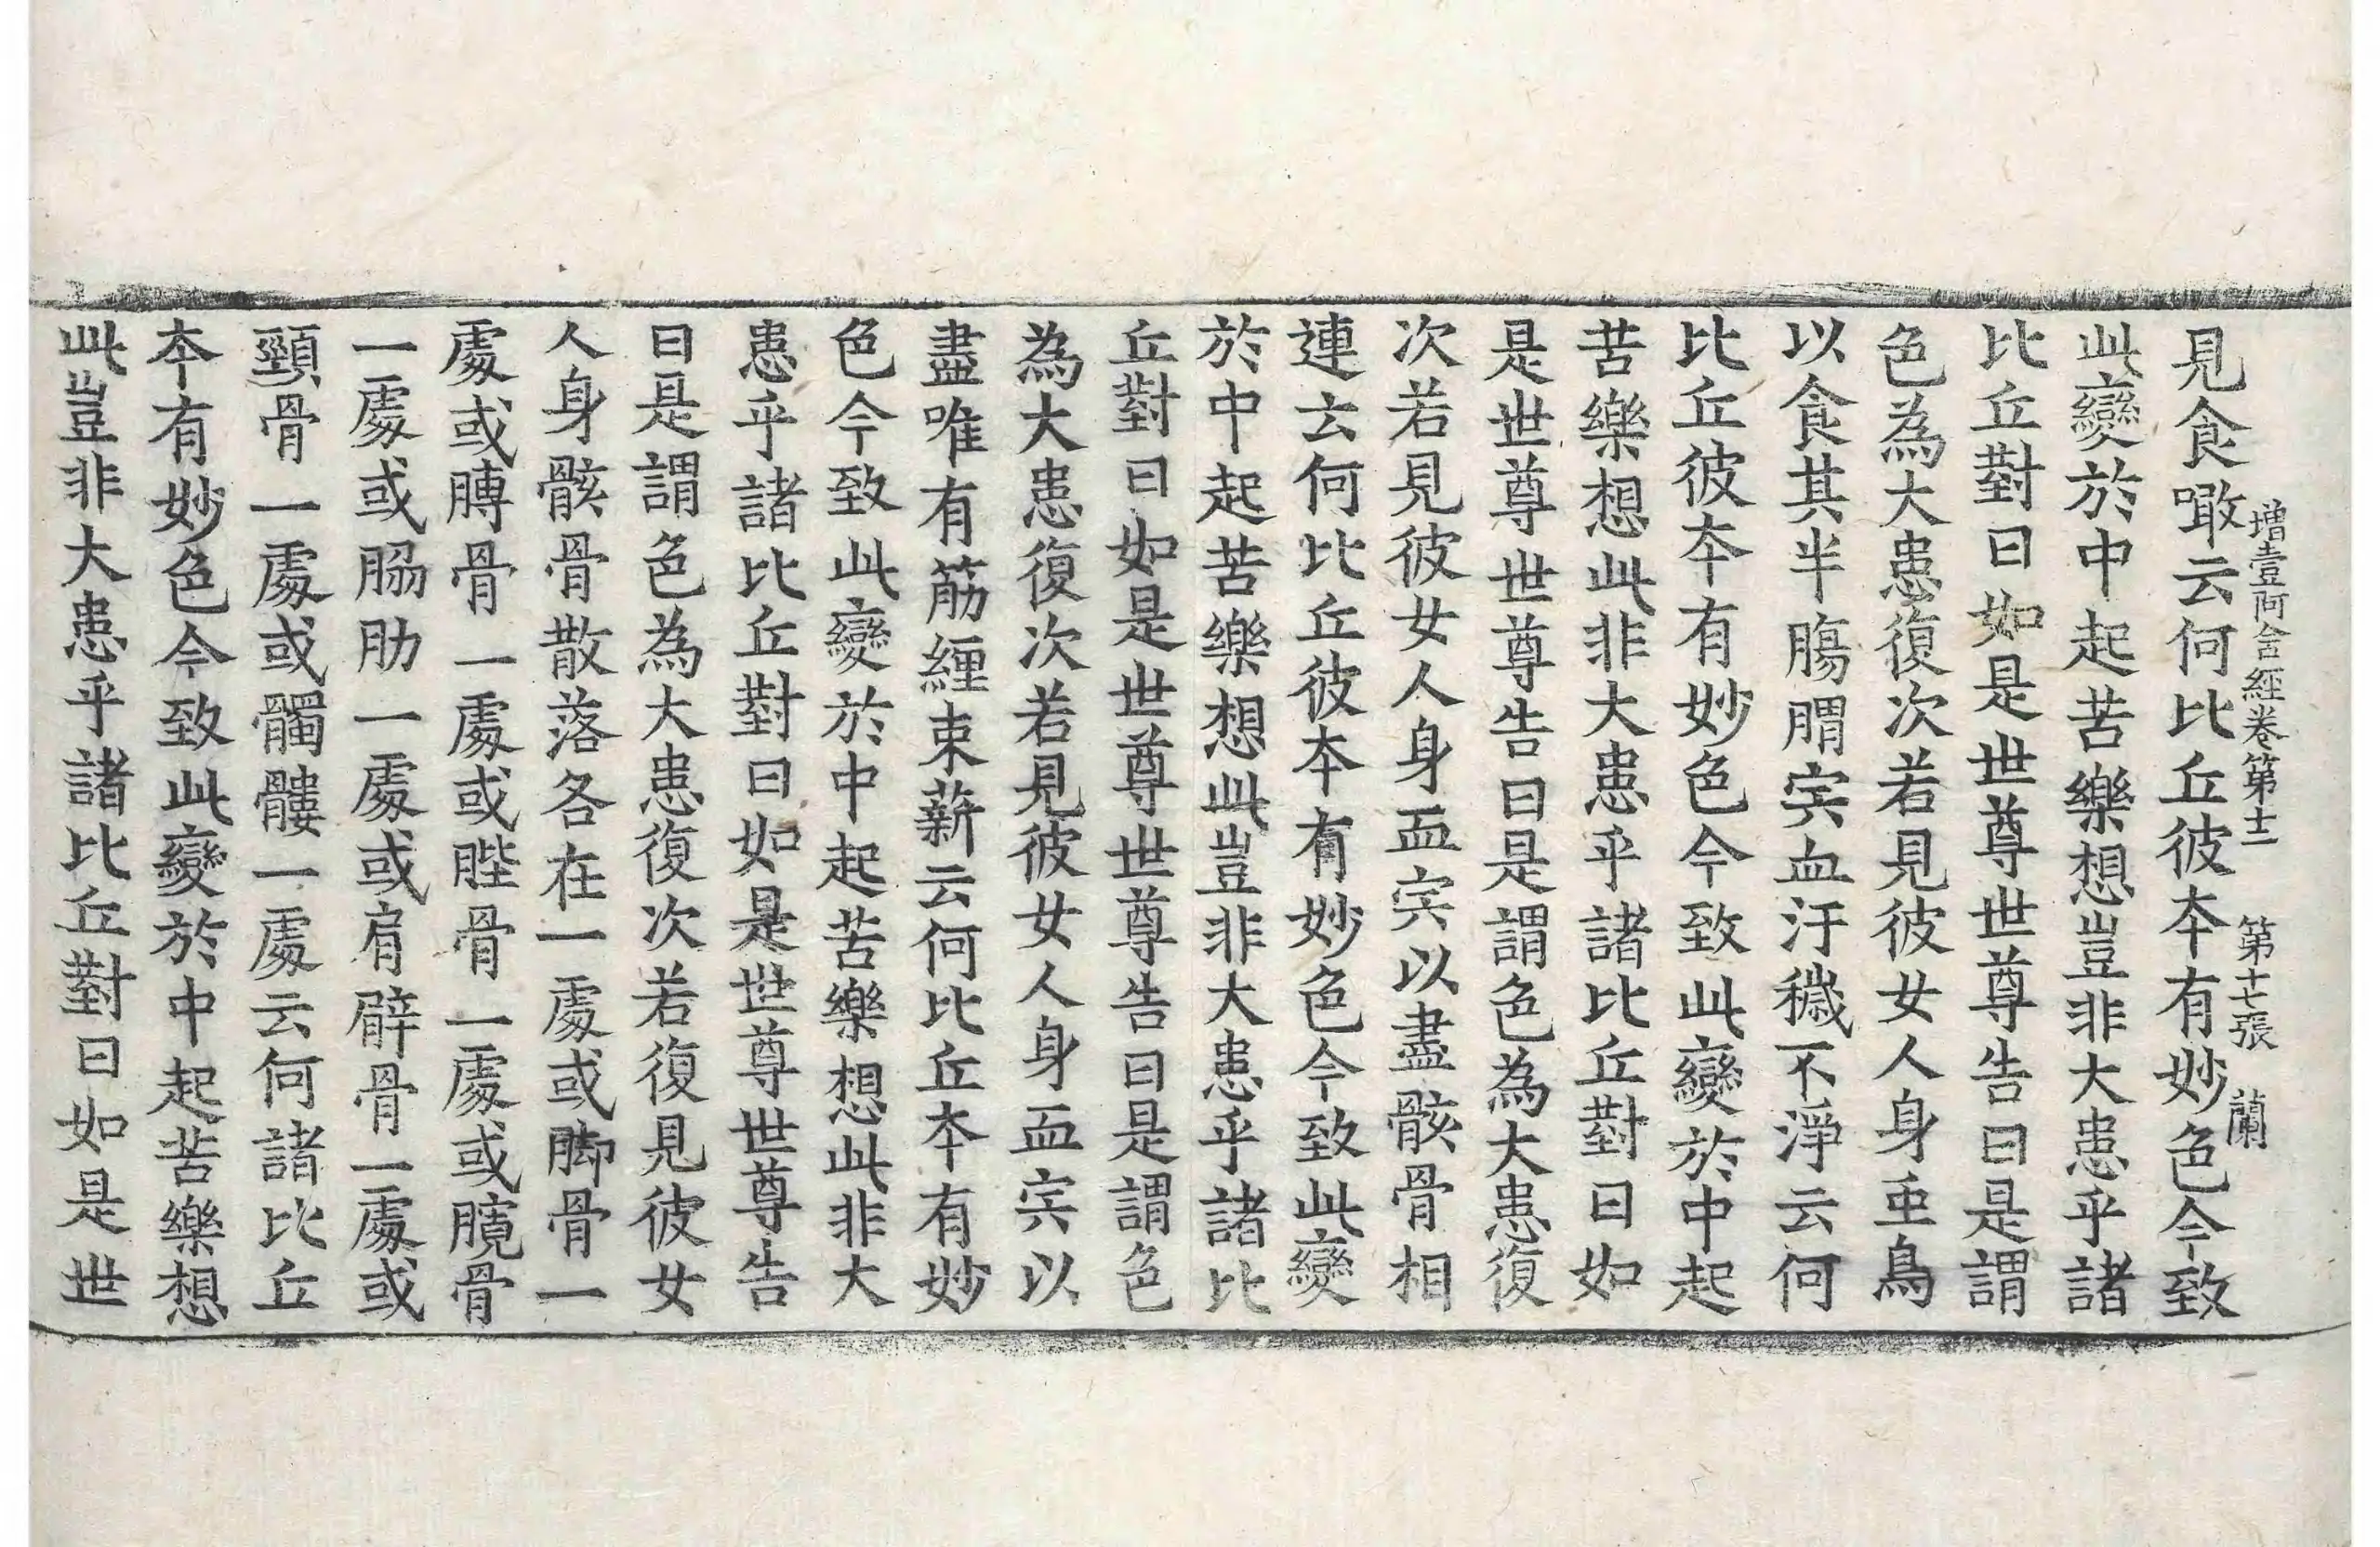 增壹阿含經卷第十二 第十七張 蘭
見食噉云何比丘彼本有妙色今致
此變於中起苦樂想豈非大患乎諸
比丘對曰如是世尊世尊告曰是謂
色為大患復次若見彼女人身蟲鳥
以食其半腸胃宍血汙穢不淨云何
比丘彼本有妙色今致此變於中起
苦樂想此非大患乎諸比丘對曰如
是世尊世尊告曰是謂色為大患復
次若見彼女人身血宍以盡骸骨相
連云何比丘彼本有妙色今致此變
於中起苦樂想此豈非大患乎諸比
丘對曰如是世尊世尊告曰是謂色
為大患復次若見彼女人身血宍以
盡唯有筋纏束薪云何比丘本有妙
色今致此變於中起苦樂想此非大
患乎諸比丘對曰如是世尊世尊告
曰是謂色為大患復次若復見彼女
人身骸骨散落各在一處或脚骨一
處或膞骨一處或䏶骨一處或臗骨
一處或脇肋一處或肩臂骨一處或
頸骨一處或髑髏一處云何諸比丘
本有妙色今致此變於中起苦樂想
此豈非大患乎諸比丘對曰如是世